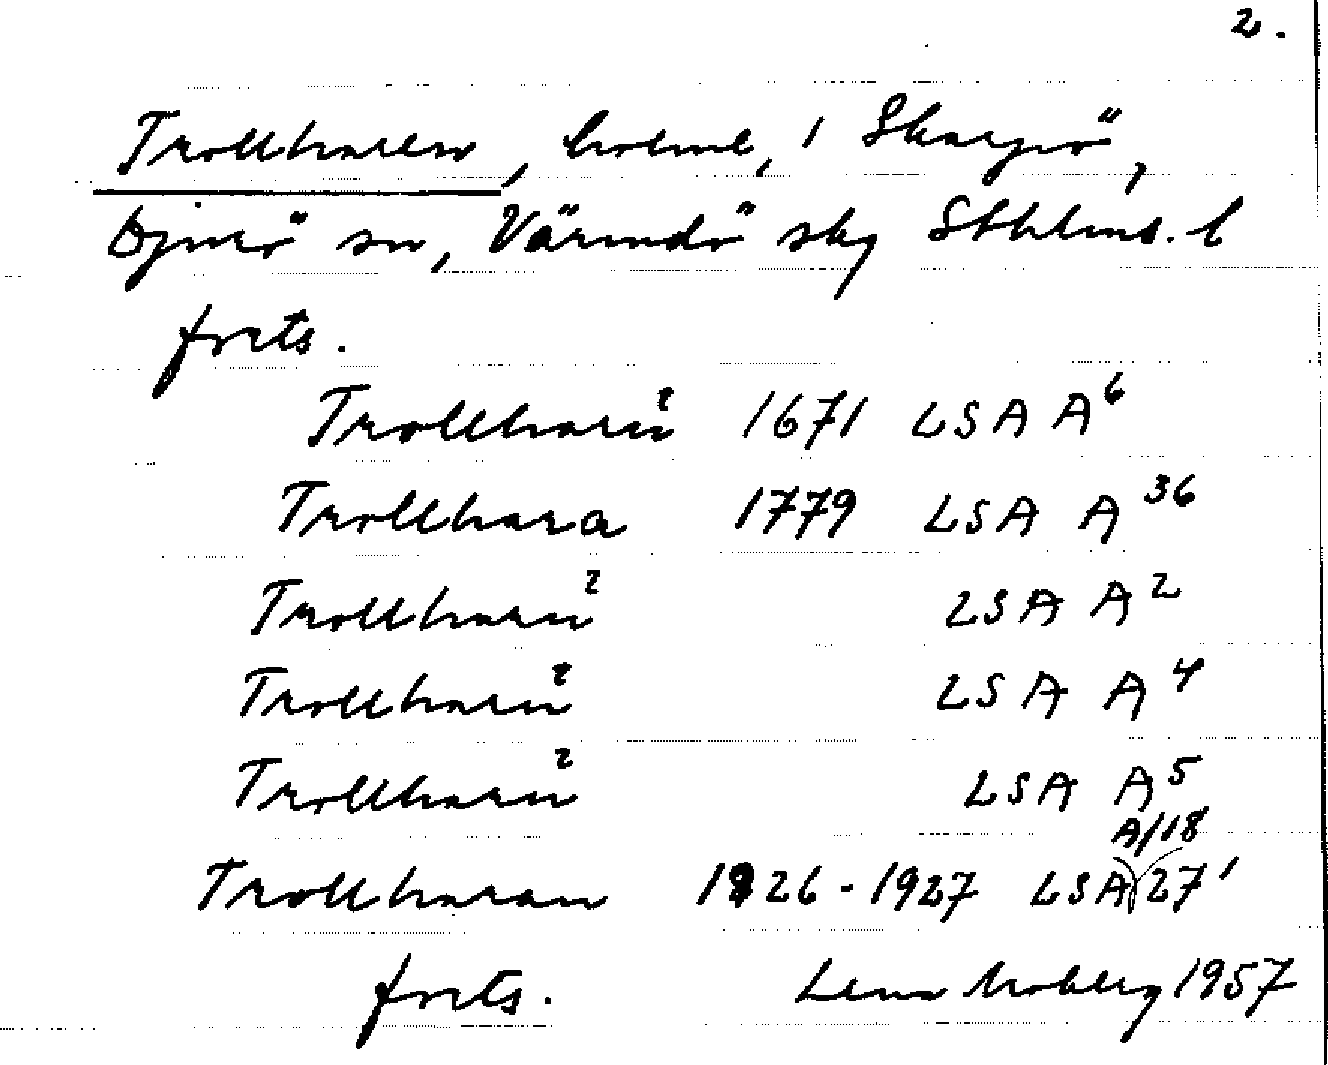 2.
Trollharen, holme, i Skarpö,
Djurö sn, Värmdö skg Sthlms. l
forts.
Trollharu 1671 LSA A 6
Trollhara 1779 LSA A 36
Trollharu 2 LSA A 2
Trollharu 2 LSA A 4
Trollharu 2 LSA A 5
A/18
Trollharan 1926-1927 LSA 27 1
forts. Lena Moberg 1957